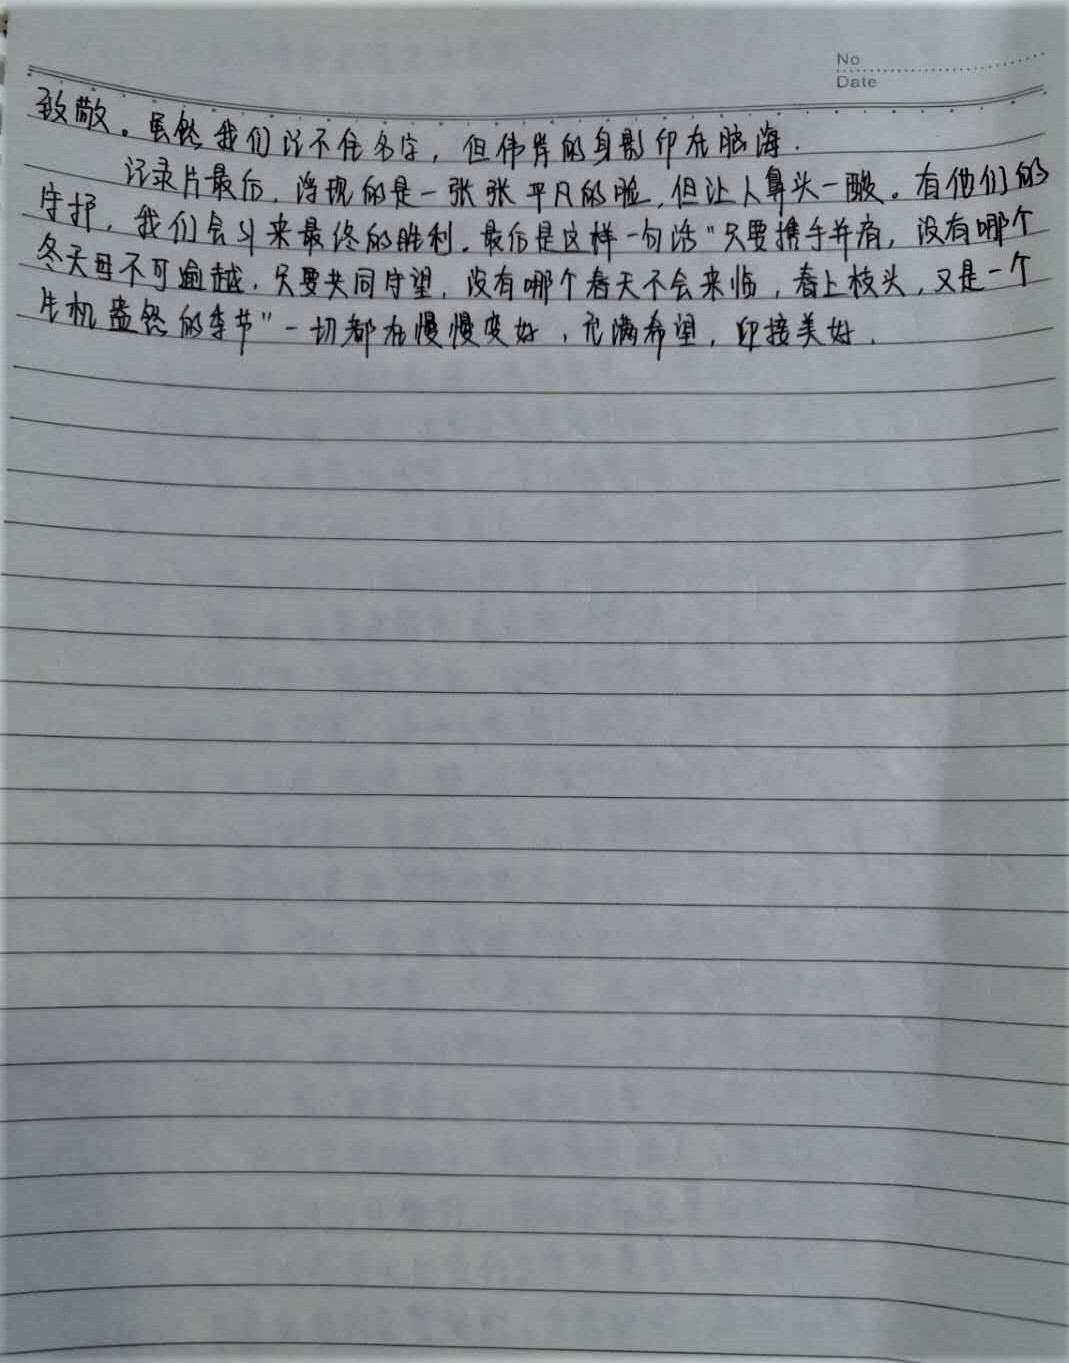 No
Date
致敬。虽然我们记不住名字，但伟岸的身影印在脑海.
记录片最后，浮现的是一张张平凡的脸，但让人鼻头一酸。有他们的
守护，我们会斗来最终的胜利。最后是这样一句话"只要携手并肩，没有哪个
冬天毋不可逾越，只要共同守望，没有哪个春天不会来临，春上枝头，又是一个
生机盎然的季节"一切都在慢慢变好，充满希望，迎接美好.